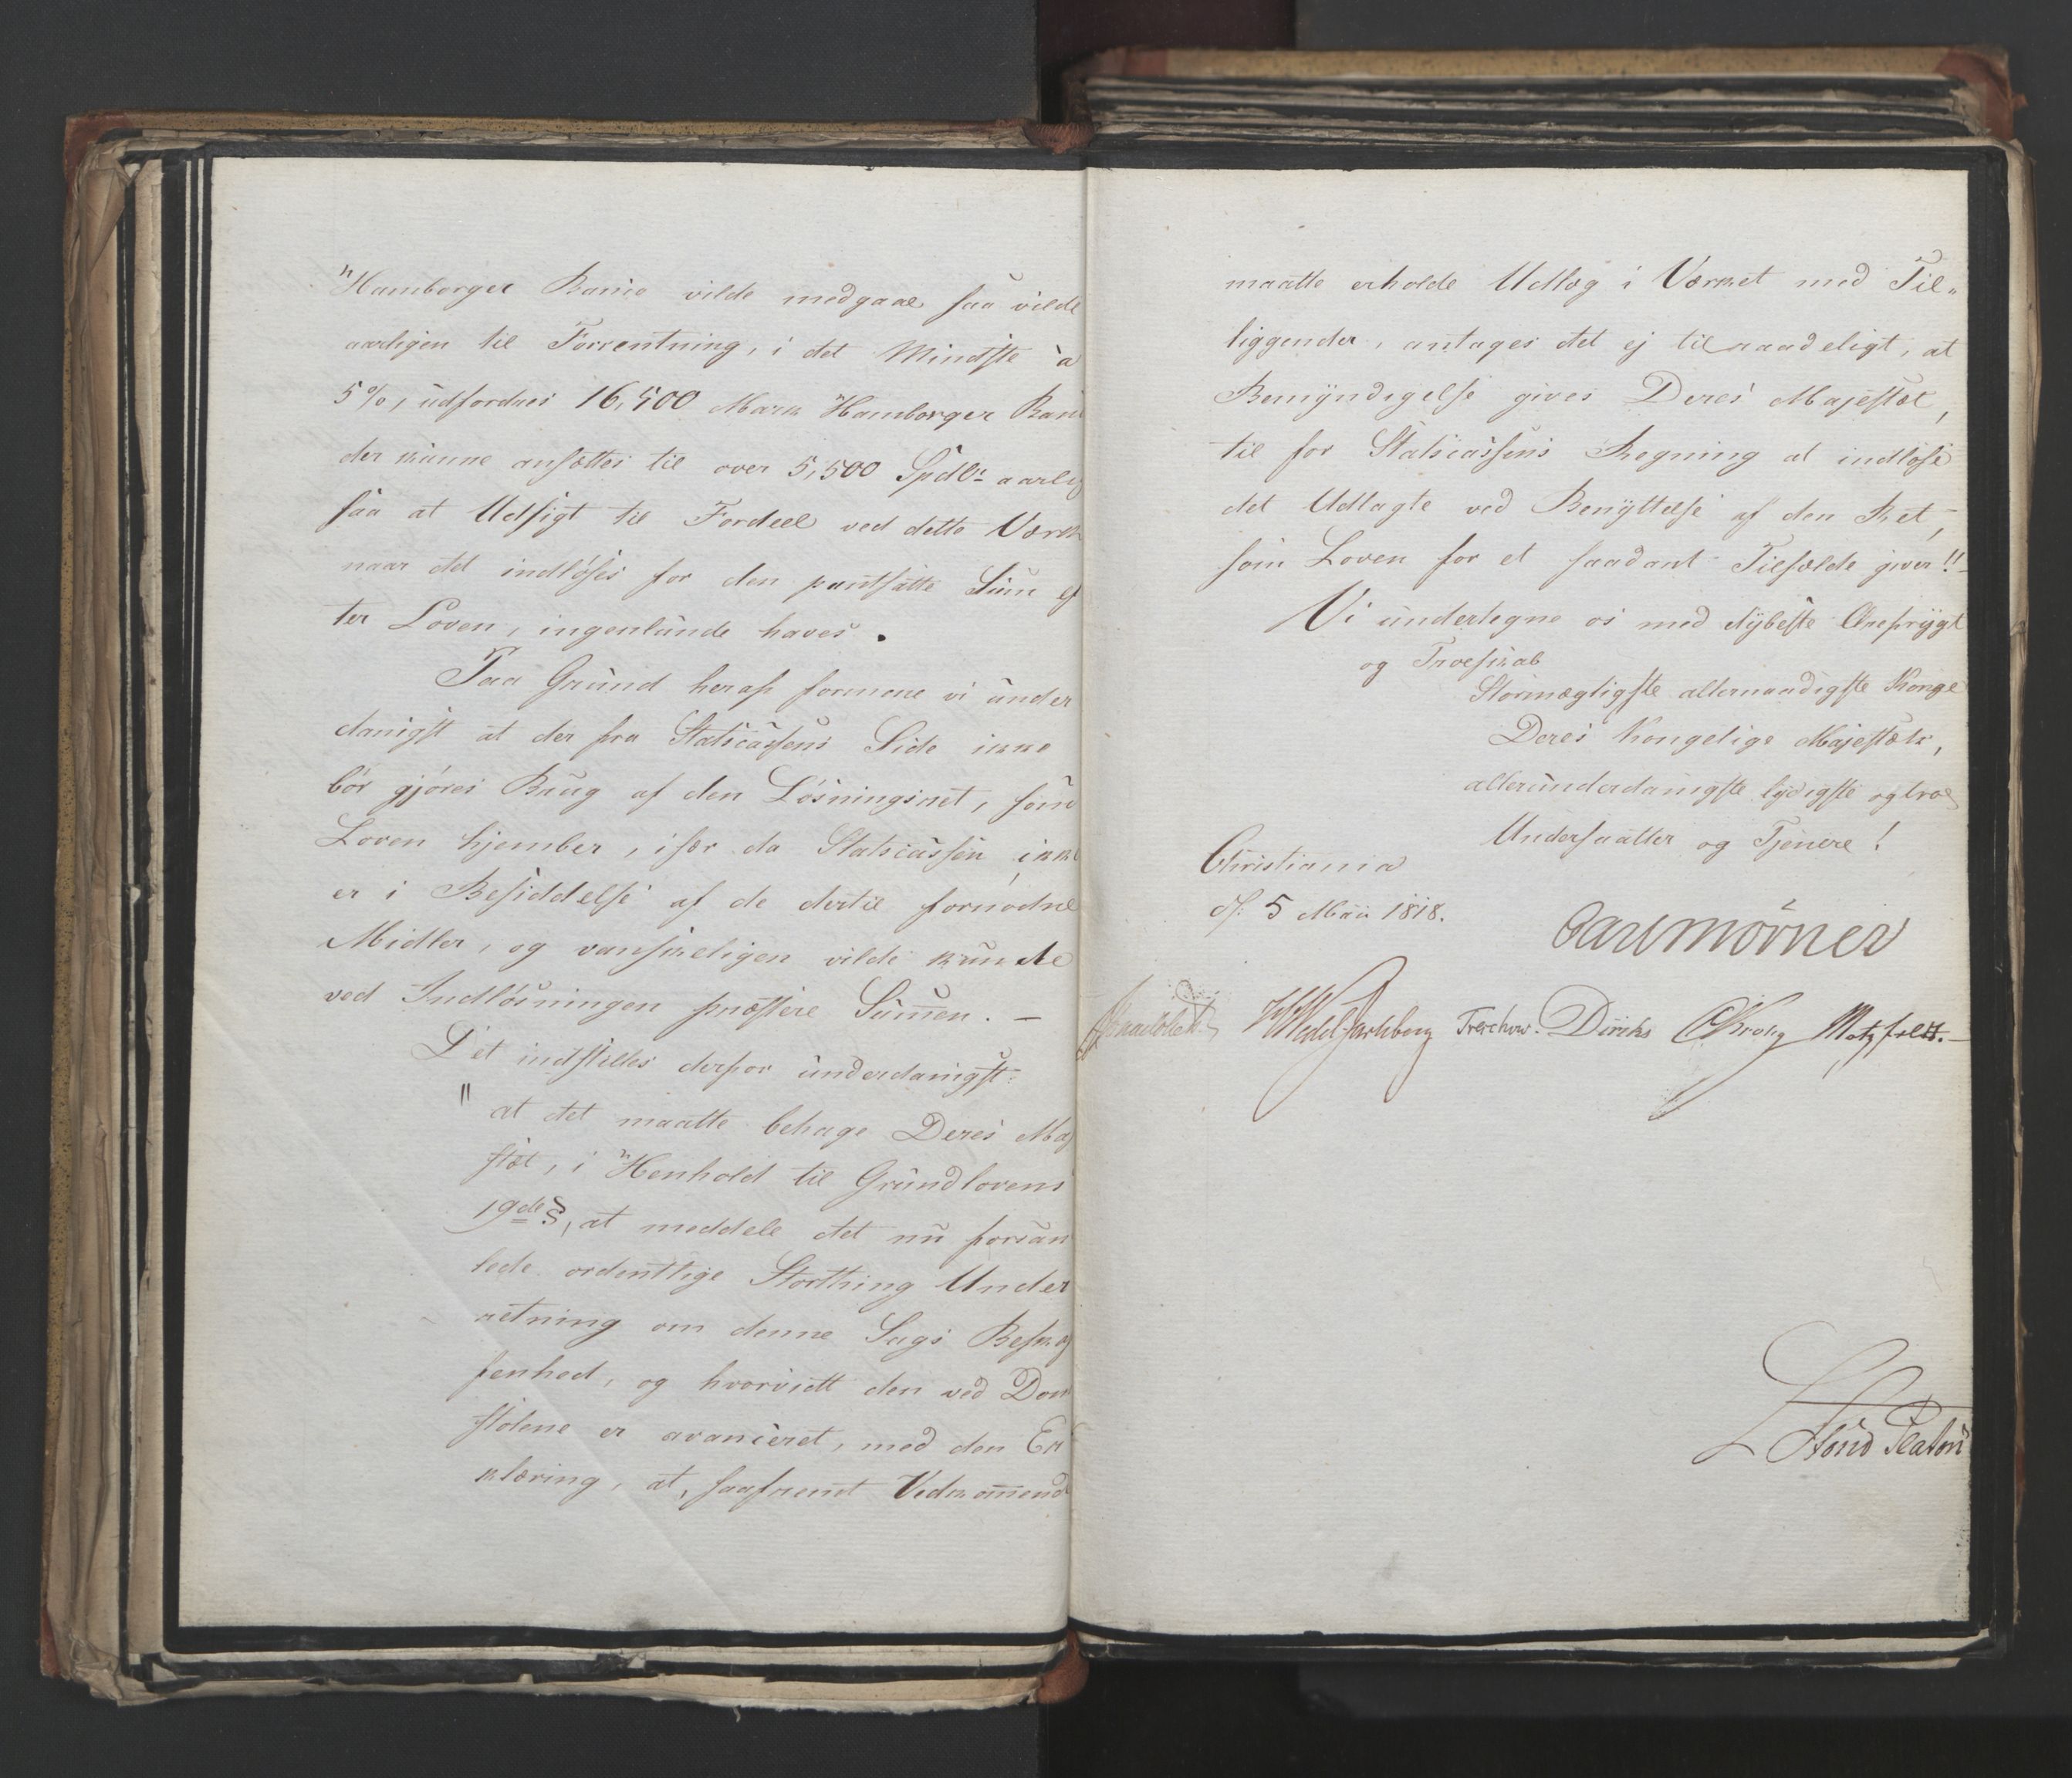 Hamborger Banco vilde medgaae saa vilde
aarligen til Forrentning, i det Mindste à
5 %, udfordres 16,500 Mark Hamborger Banc
der kunne ansættes til over 5,500 Spdlr aarlig
saa at Udsigt til Fordeel ved dette Værk
naar det indløses for den pantsatte Sum ef
ter Loven, ingenlunde haves.
Paa Grund heraf formene vi under
danigst at der fra Statscassens Side ikke
bør gjøres Brug af den Løsningsret, som
Loven hjemler, især da Statscassen ikke
er i Besiddelse af de dertil fornødne
Midler, og vanskeligen vilde kunde
ved Indløsningen præstere Sum̅en. –
Det indstilles derfor underdanigst:
" at det maatte behage Deres Maj
stæt, i Henhold til Grundlovens
19de §, at meddele det nu forsam
lede ordentlige Storthing Under
retning om denne Sags Beskaf
fenhed, og hvorvidt den ved Dom
stolene er avanceret, med den Er
klæring, at, saafremt Vedkom̅end
maatte erholde Udlæg i Værket med Til„
liggender, antages det ej tilraadeligt, at
Bemyndigelse gives Deres Majestæt,
til for Statscassens Regning at indløse
det Udlagte ved Benyttelse af den Ret,
som Loven for et saadant Tilfælde giver!!
Vi undertegne os med dybeste Ærefrygt
og Troeskab
Stormægtigste allernaadigste Konge
Deres Kongelige Majestæts,
allerunderdanigste lydigste og troe
Undersaatter og Tjenere!
Christiania
d: 5 Maii 1818.
Carl Mörner
WedelJarlsberg Treschow. Diriks CKrohg Motzfeldt.
Stoud Platou